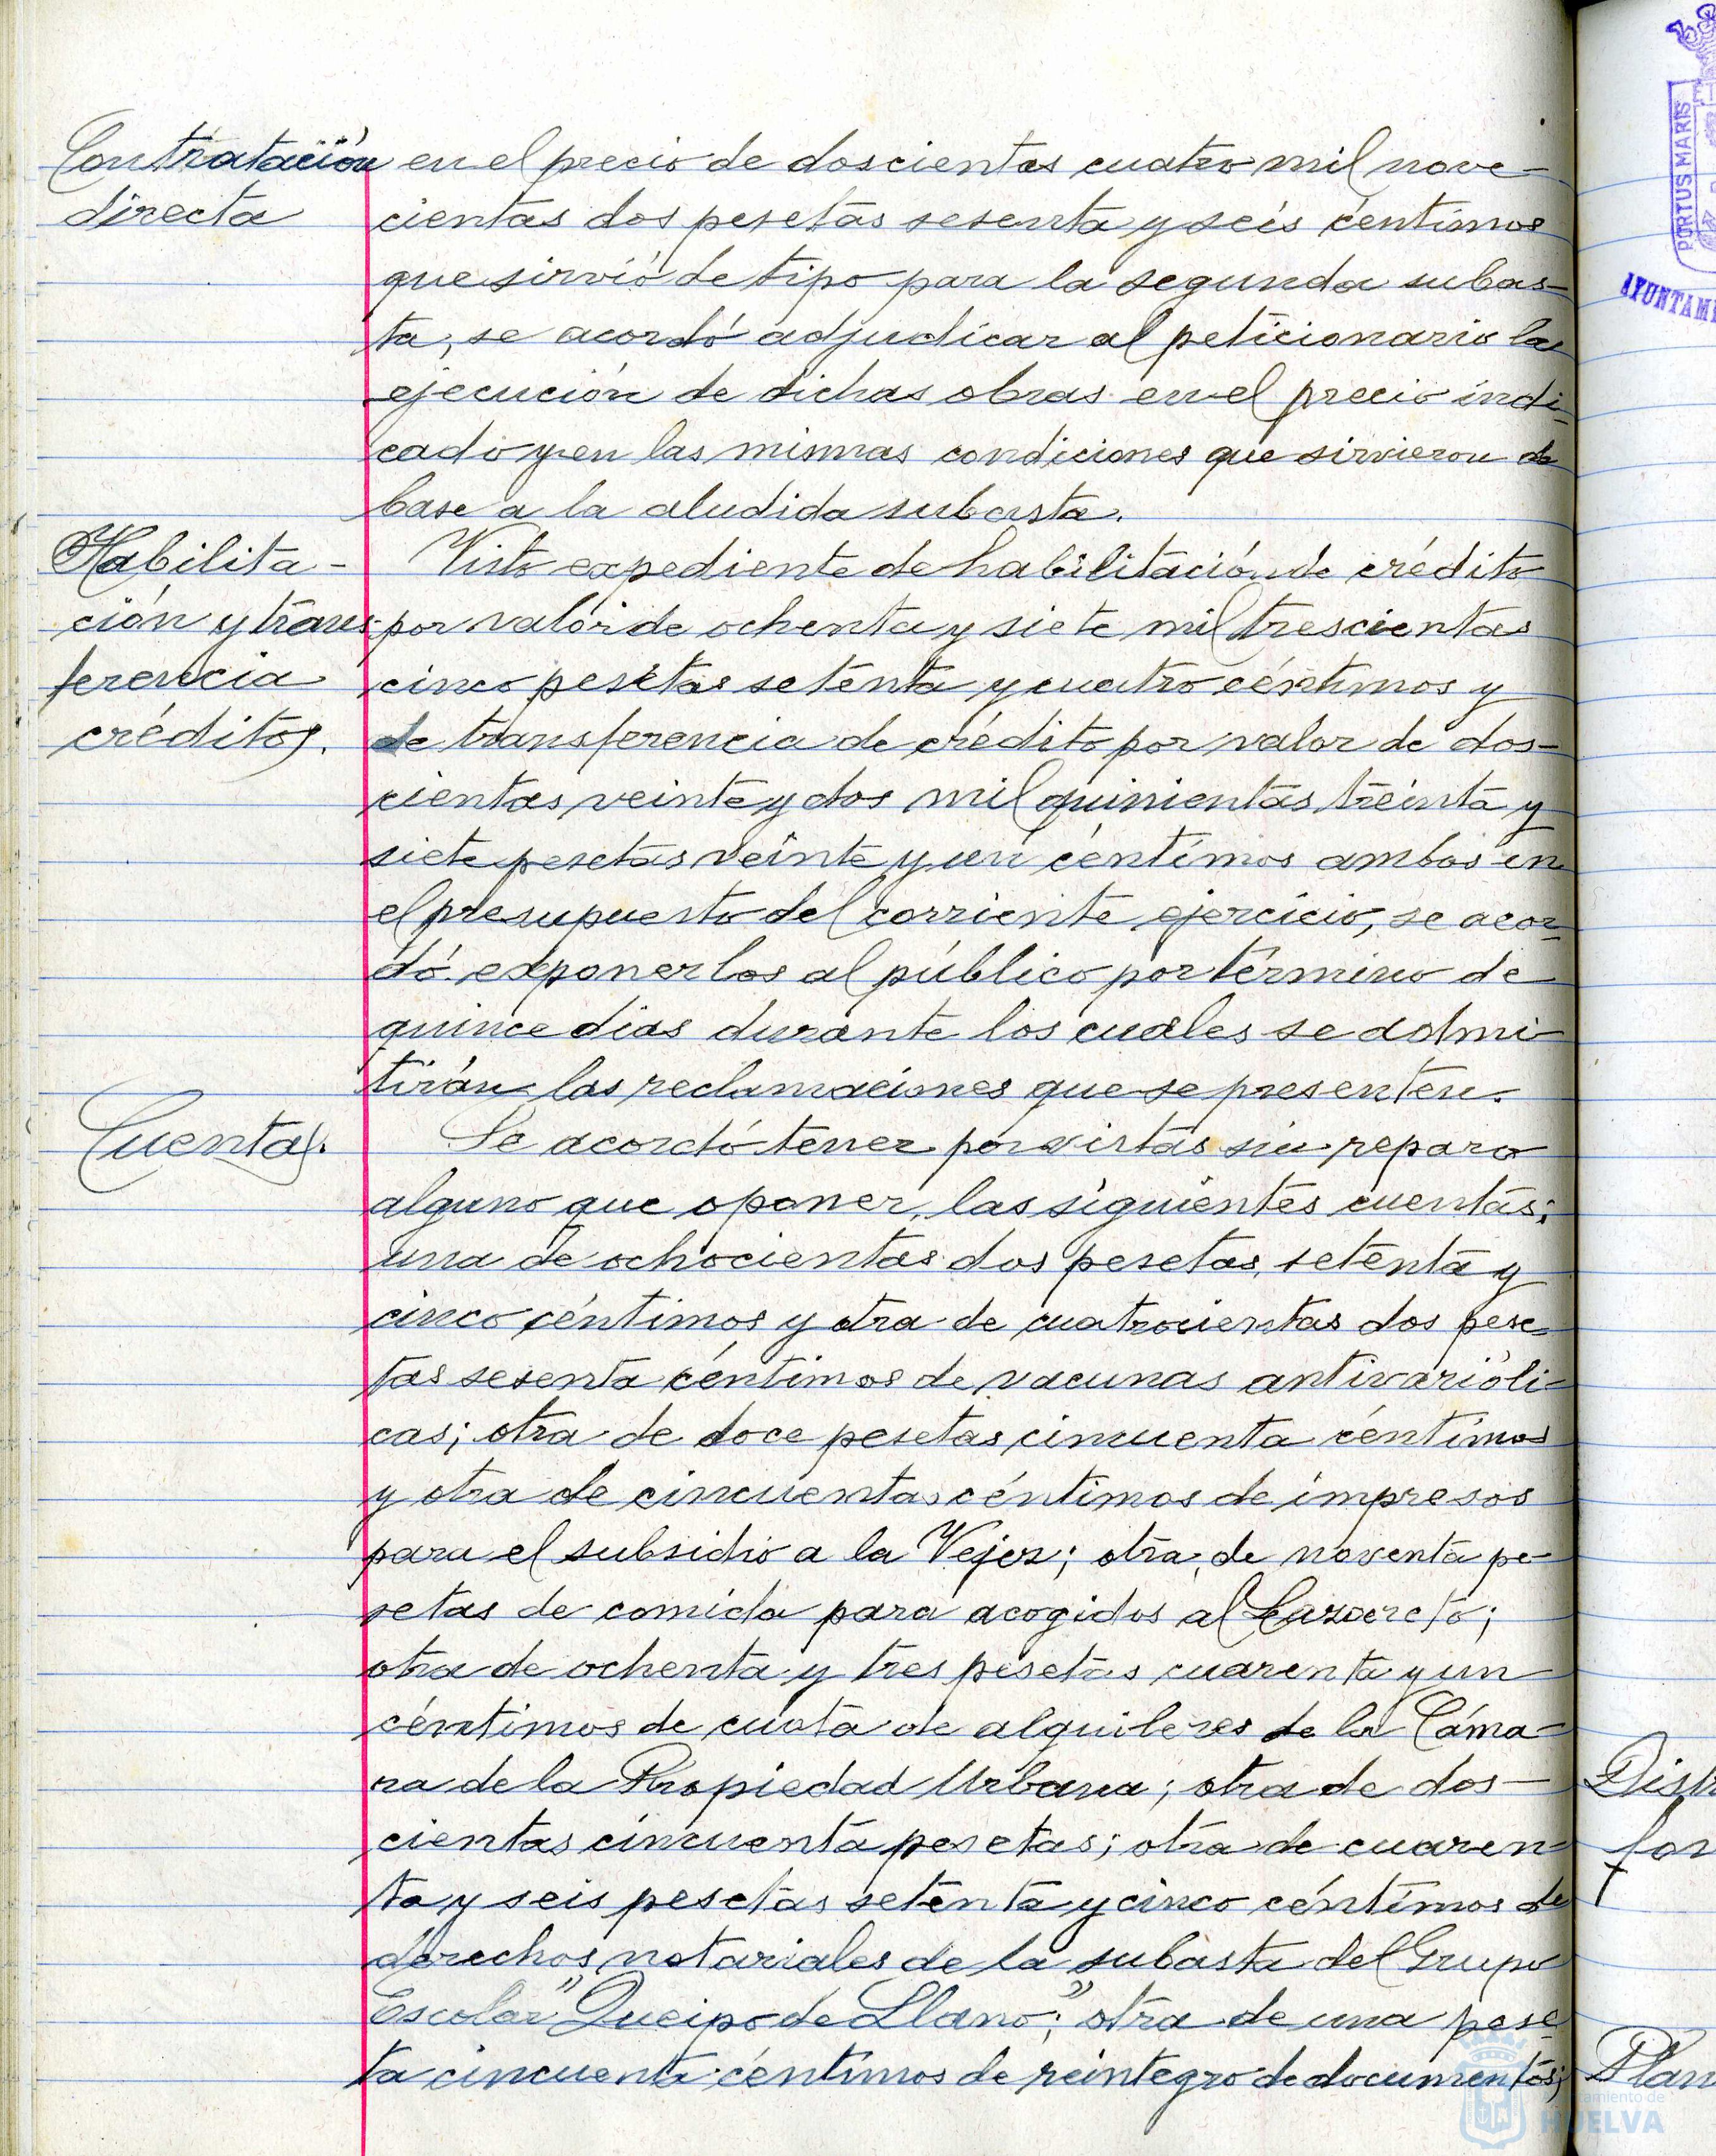 Contratación
directa
en el precio de doscientas cuatro mil nove-
cientas dos pesetas sesenta y seis céntimos
que sirvió de tipo para la segunda subas-
ta, se acordó adjudicar al peticionario la
ejecución de dichas obras en el precio indi-
cado y en las mismas condiciones que sirvieron de
base a la aludida subasta.
Habilita-
ción y trans
ferencia
créditos.
Visto expediente de habilitación de crédito
por valor de ochenta y siete mil trescientas
cinco pesetas setenta y cuatro céntimos y
de transferencia de crédito por valor de dos-
cientas veinte y dos mil quinientas treinta y
siete pesetas veinte y un céntimos ambos en
el presupuesto del corriente ejercicio, se acor-
dó exponerlos al público por término de
quince dias durante los cuales se admi-
tirán las reclamaciones que se presenten.
Cuentas.
Se acordó tener por vistas sin reparo
alguno que oponer, las siguientes cuentas;
una de ochocientas dos pesetas setenta y
cinco céntimos y otra de cuatrocientas dos pese-
tas sesenta céntimos de vacunas antivarióli-
cas; otra de doce pesetas cincuenta céntimos
y otra de cincuenta céntimos de impresos
para el subsidio a la Vejez; otra de noventa pe-
setas de comida para acogidos al Lazareto;
otra de ochenta y tres pesetas cuarenta y un
céntimos de cuota de alquileres de la Cáma-
ra de la Propiedad Urbana; otra de dos-
cientas cincuenta pesetas; otra de cuaren-
ta y seis pesetas setenta y cinco céntimos de
derechos notariales de la subasta del Grupo
Escolar "Queipo de Llano"; otra de una pese-
ta cincuenta céntimos de reintegro de documentos;
PORTUS MARIS
AYUNTAM
Distr
for
Plan
amiento de
HUELVA